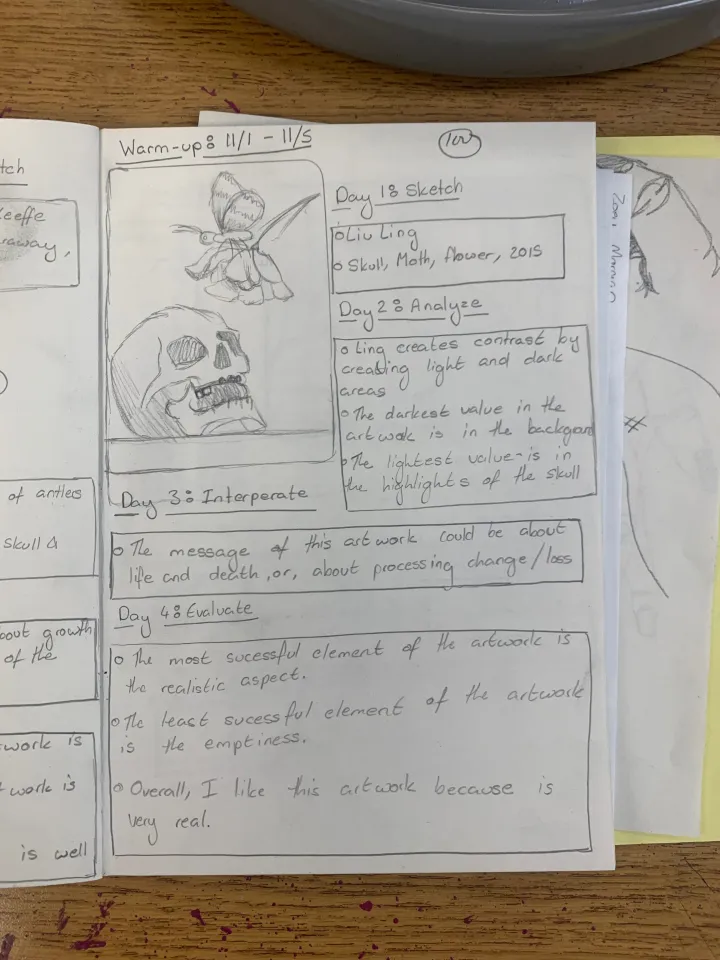 tch
eeffe
away,
of antlers
Skull &
out growth
of the
work is
work is
is well
Warm-up: 11/1 - 11/5
100
Day 1: Sketch
Liu Ling
Skull, Moth, flower, 2015
Day 2: Analyze
Ling creates contrast by
creating light and dark
areas
The darkest value in the
artwork is in the background
The lightest value is in
the highlights of the skull
Day 3: Interperate
The message of this artwork could be about
life and death, or, about processing change/loss
Day 4: Evaluate
The most sucessful element of the artwork is
the realistic aspect.
The least sucessful element of the artwork
is the emptiness.
Overall, I like this artwork because is
very real.
#